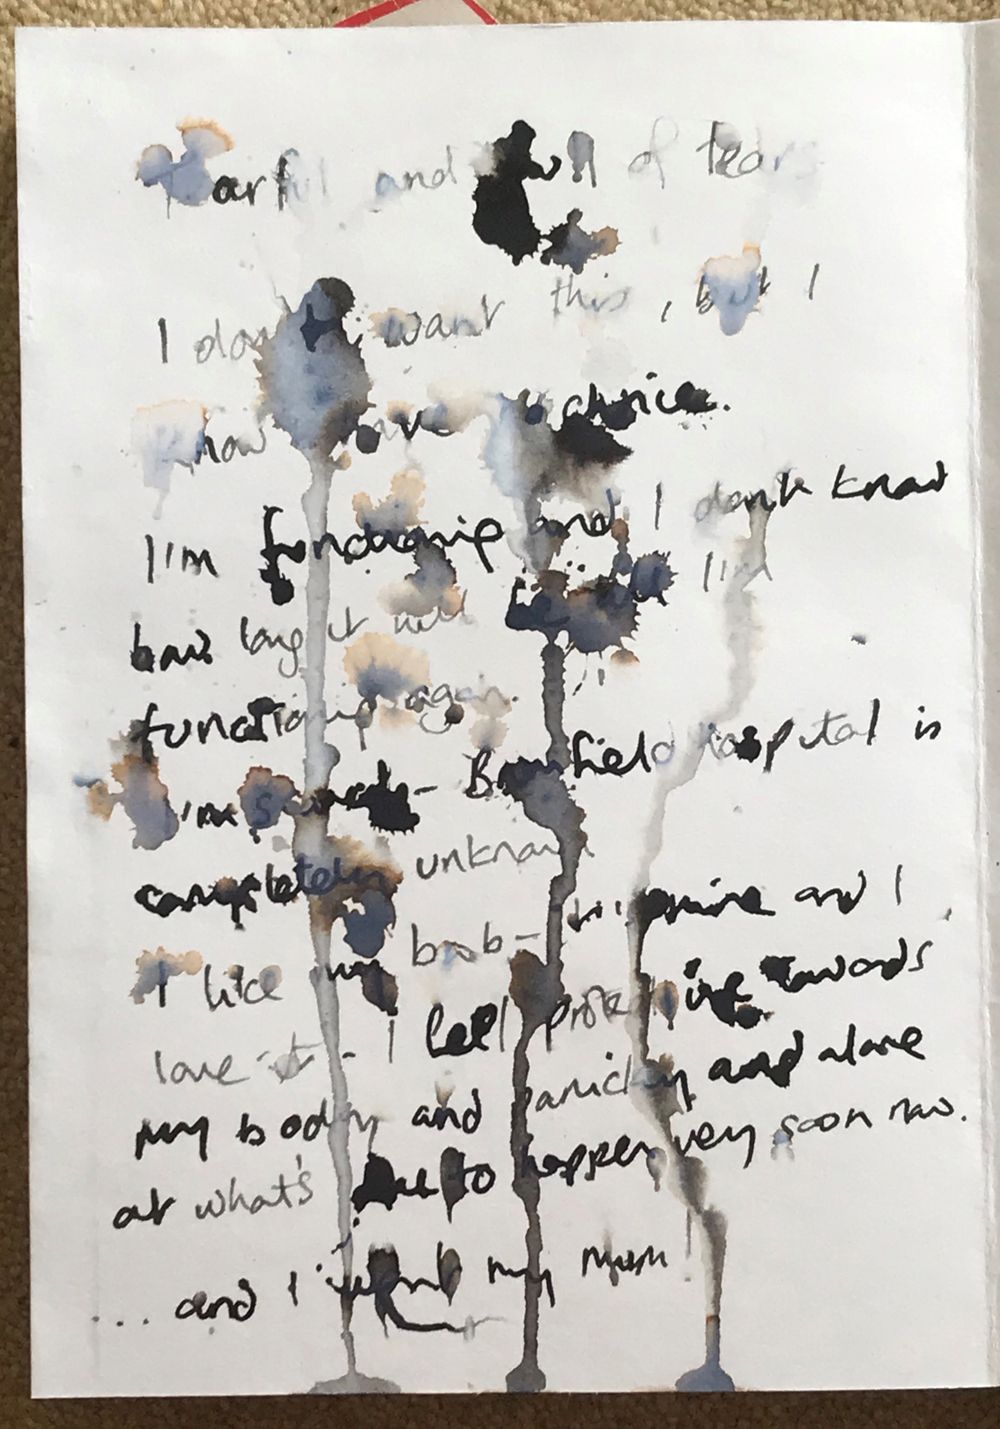 Tearful and full of tears
I don't want this, but I
know I have no choice.
I'm functioning and I don't know
how long it will be until I'm
functioning again.
I'm scared - Bronfield hospital is
completely unknown
I like my boob - it's mine and I
love it - I feel protective towards
my body and panicky and alone
at what's due to happen very soon now.
... and I want my mum!